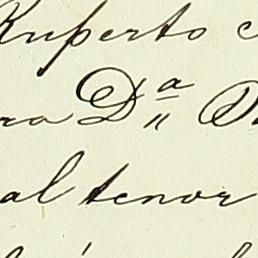 Ruperto
ra Dª
al tenor